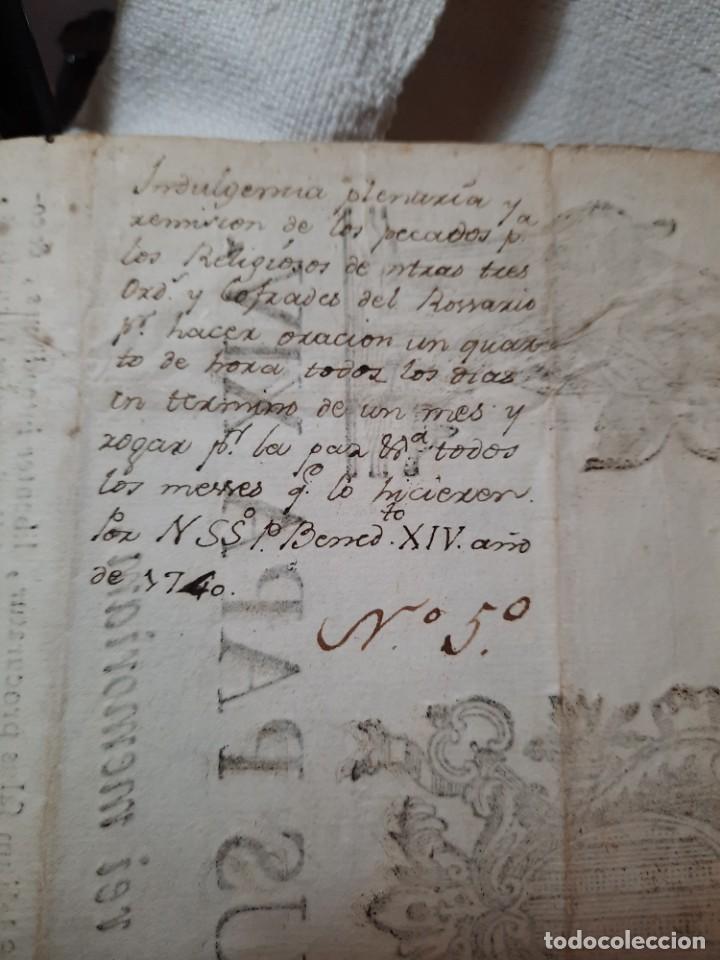 Indulgencia plenaria y
remision de los pecados pª
los Religiosos de ntras tres
Ord.ˢ y Cofrades del Rossario
pʳ. hacer oracion un quar-
to de hora todos los dias
en termino de un mes y
rogar pʳ. la paz &ª todos
los messes qᵉ. lo hicieren.
Por N SSº Pº. Bened.ᵗᵒ XIV. año
de 1740.
Nº. 5º
rei memoriam
US PAPA XIV
todocoleccion